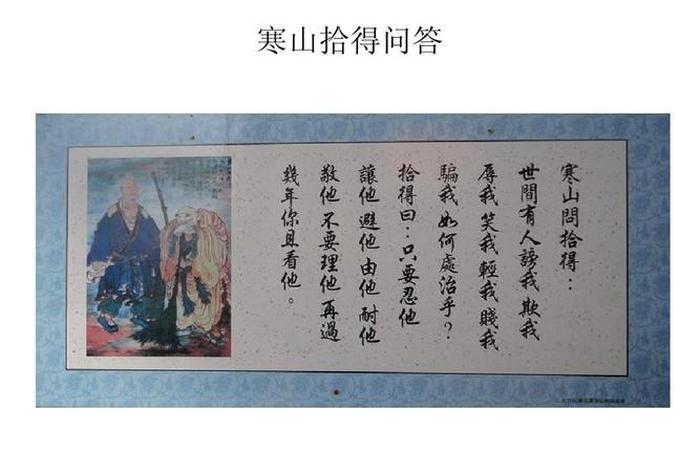 寒山拾得问答
寒山問拾得：
世間有人謗我 欺我
辱我 笑我 輕我 賤我
騙我 如何處治乎？
拾得曰：只要忍他
讓他 避他 由他 耐他
敬他 不要理他 再過
幾年你且看他。